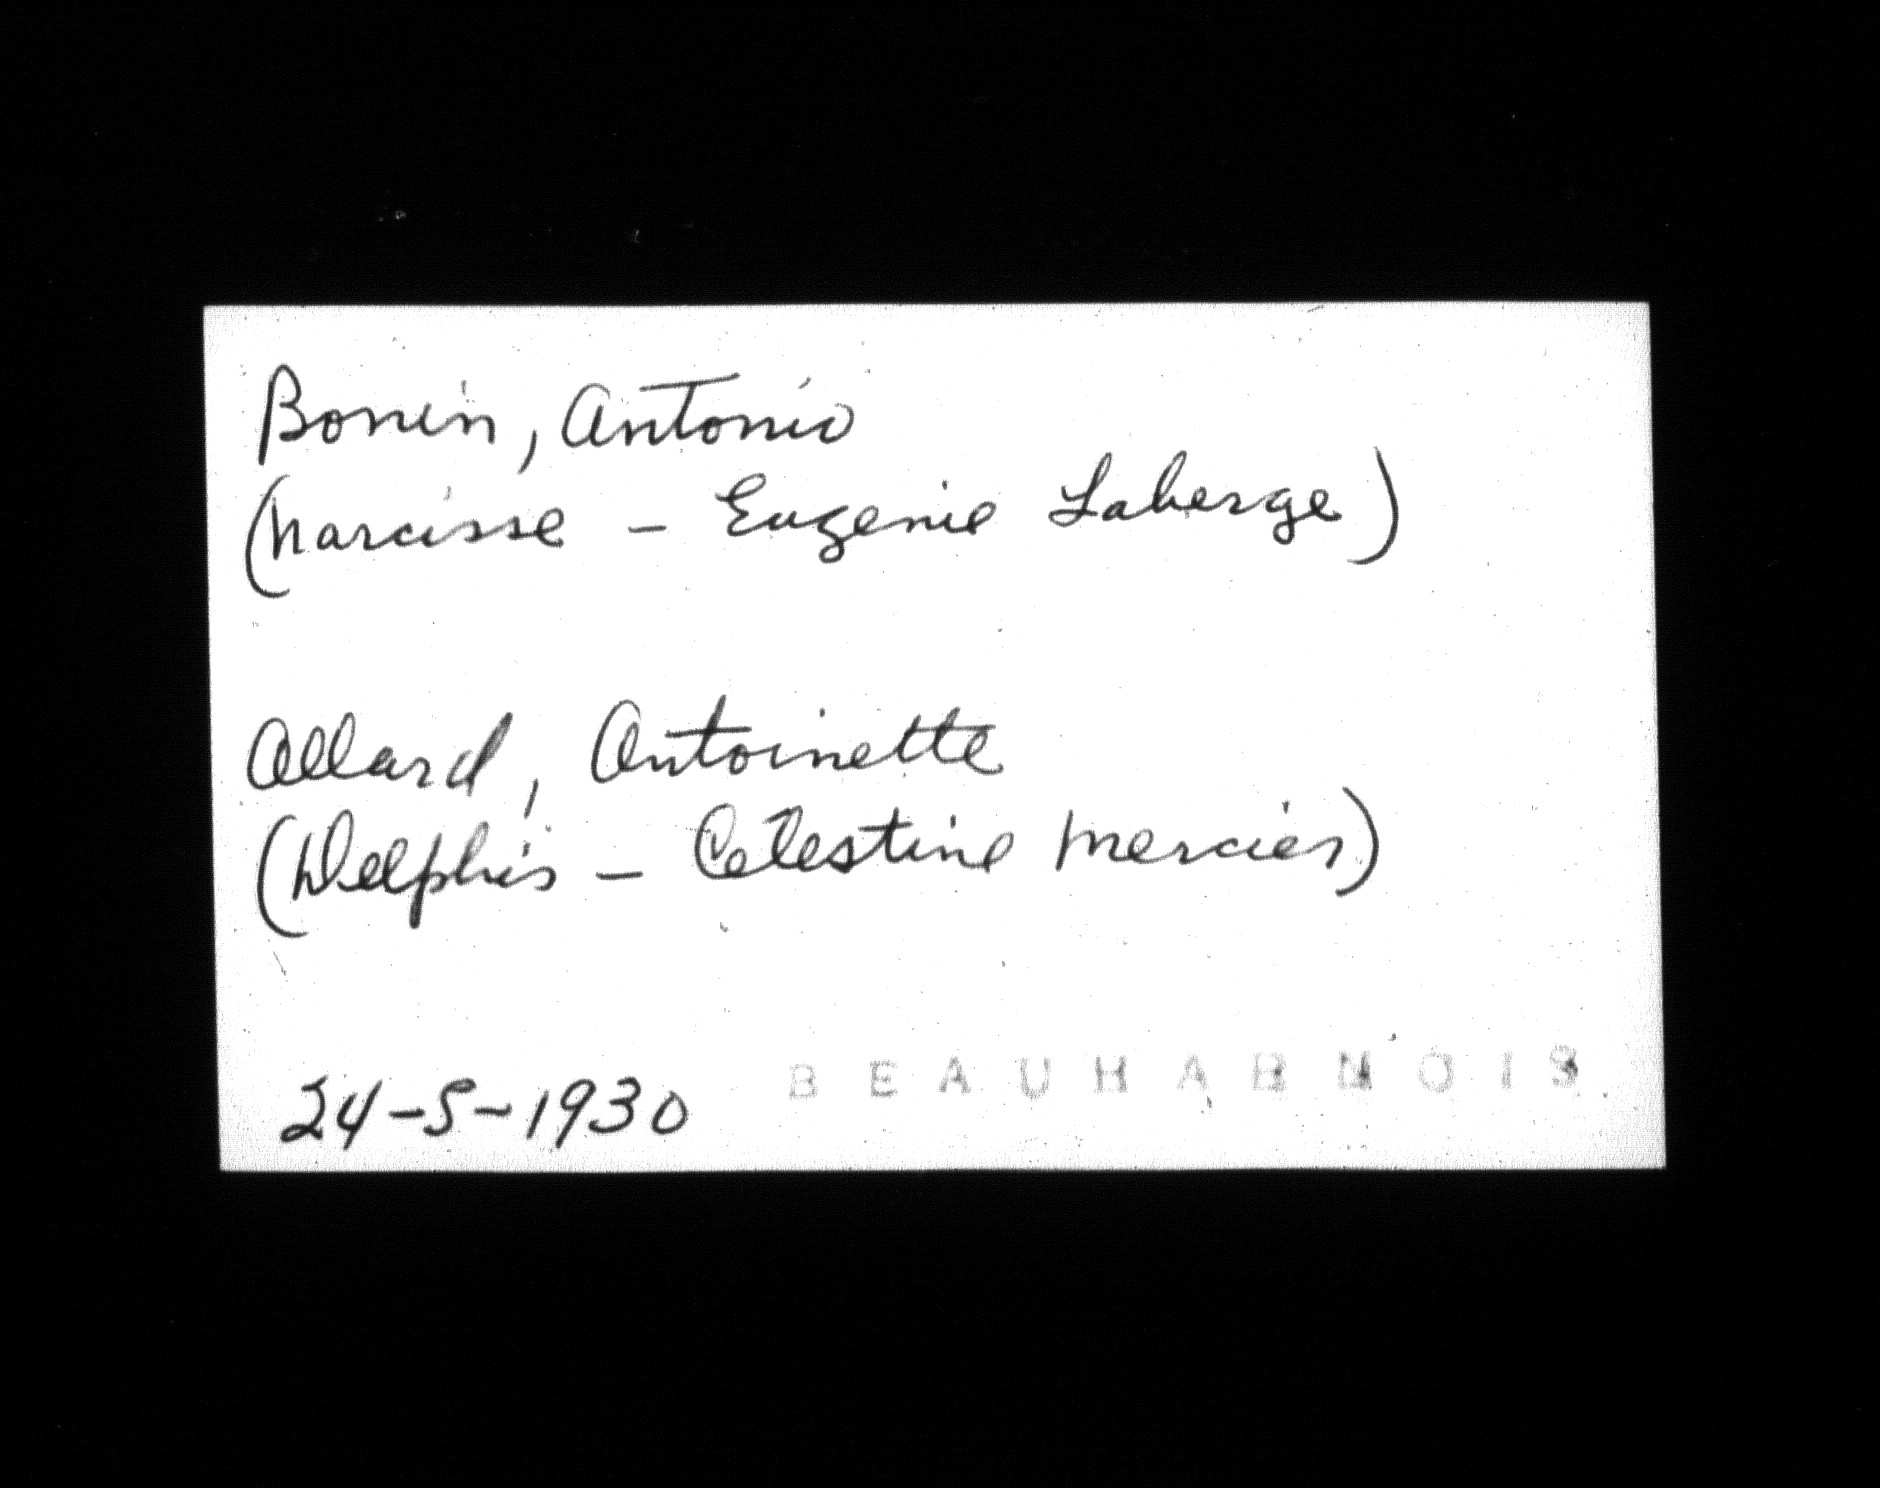 Bonin, Antonio
(Narcisse - Eugenie Laberge)
Allard, Antoinette
(Delphis - Celestine Mercier)
24-5-1930 BEAUHARNOIS